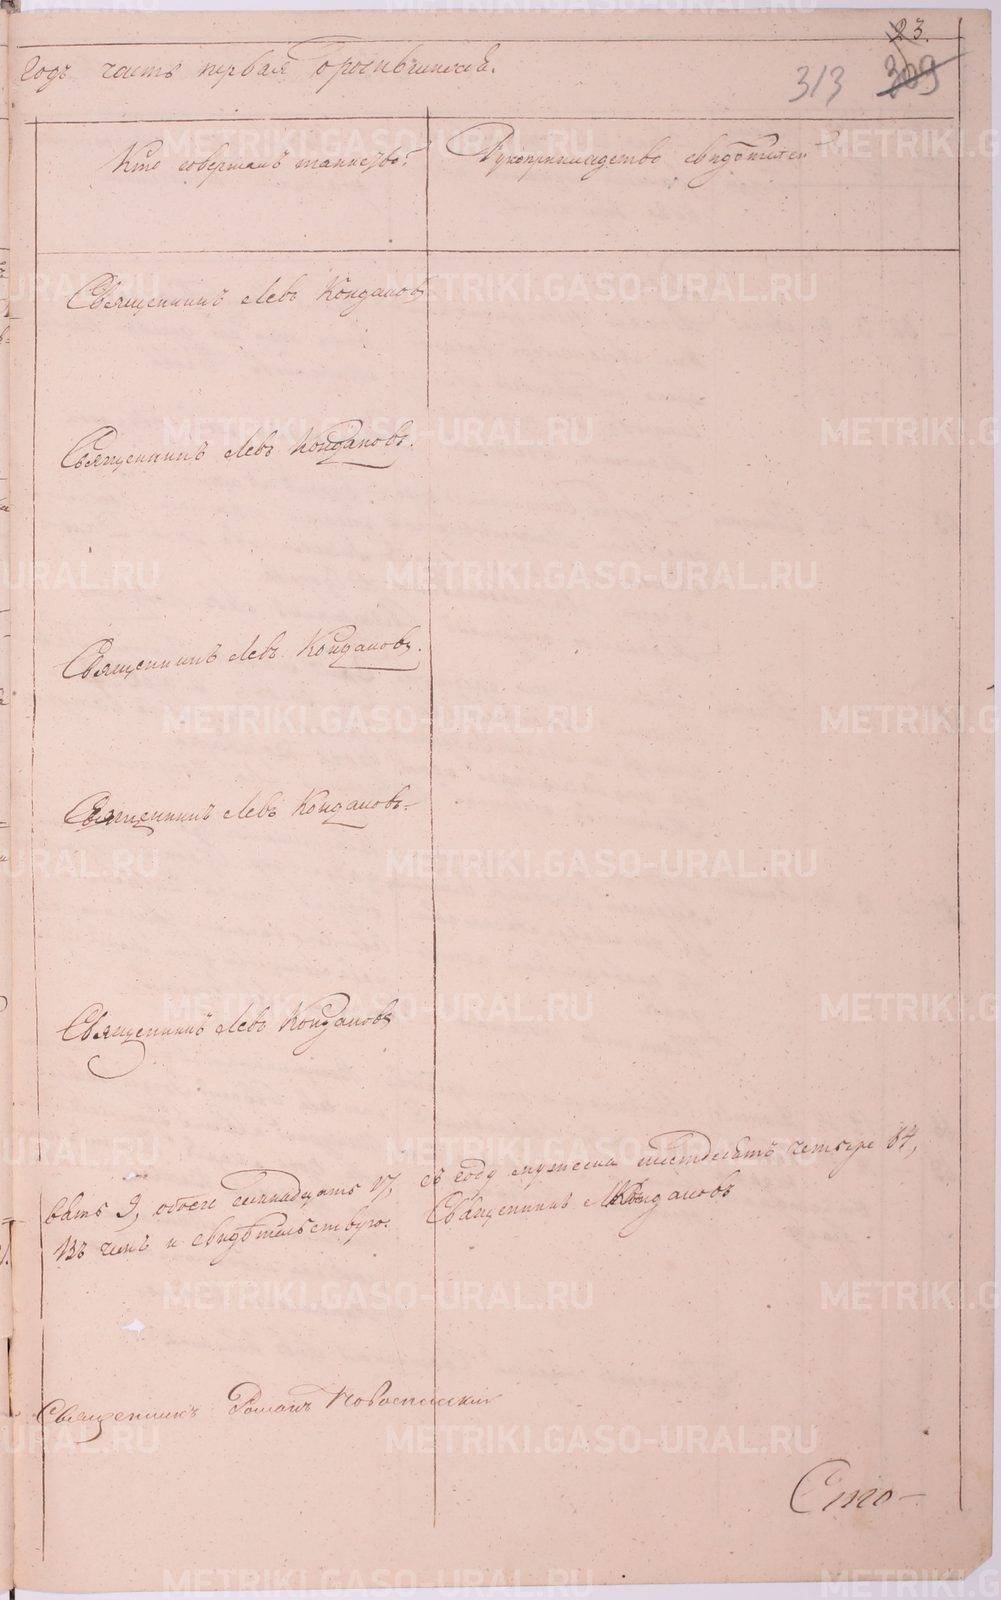 23.
годъ часть первая о родившихся.
313 309
Кто совершалъ таинство?
Рукоприкладство свидѣтелей
Священникъ Левъ Кондаковъ
Священникъ Левъ Кондаковъ.
Священникъ Левъ Кондаковъ.
Священникъ Левъ Кондаковъ.
Священникъ Левъ Кондаковъ
вять 9, обоего семнадцать 17, въ году мужеска шестьдесятъ четыре 64,
въ чемъ и свидѣтельствую. Священникъ Л. Кондаковъ
Священникъ Романъ
Сто-
METRIKI.GASO-URAL.RU